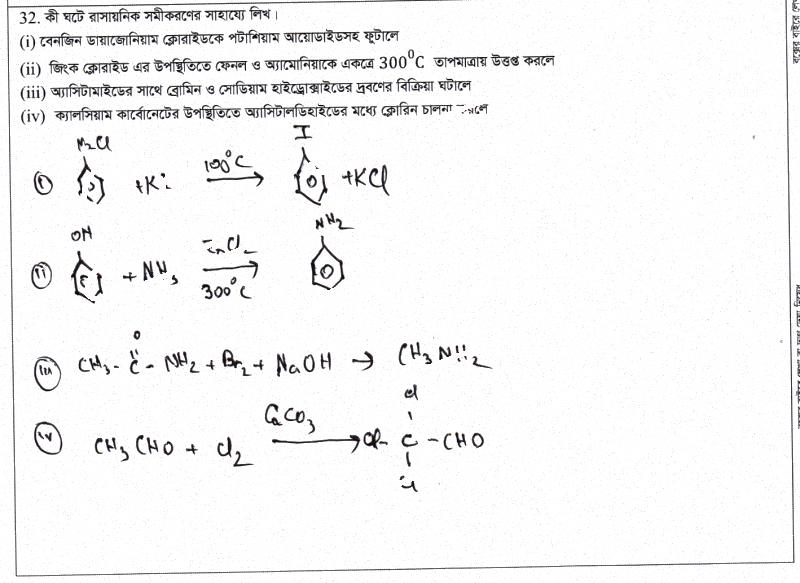 32. কী ঘটে রাসায়নিক সমীকরণের সাহায্যে লিখ।
(i) বেনজিন ডায়াজোনিয়াম ক্লোরাইডকে পটাশিয়াম আয়োডাইডসহ ফূটালে
(ii) জিংক ক্লোরাইড এর উপস্থিতিতে ফেনল ও অ্যামোনিয়াকে একত্রে 300⁰C তাপমাত্রায় উত্তপ্ত করলে
(iii) অ্যাসিটামাইডের সাথে ব্রোমিন ও সোডিয়াম হাইড্রোক্সাইডের দ্রবণের বিক্রিয়া ঘটালে
(iv) ক্যালসিয়াম কার্বোনেটের উপস্থিতিতে অ্যাসিটালডিহাইডের মধ্যে ক্লোরিন চালনা
N2Cl I
(i) + K 100°C → + KCl
OH NH2
(ii) + NH3 ZnCl2 300°C →
O
(iii) CH3 - C - NH2 + Br2 + NaOH → CH3NH2
Cl
(iv) CH3CHO + Cl2 CaCO3 → Cl - C - CHO